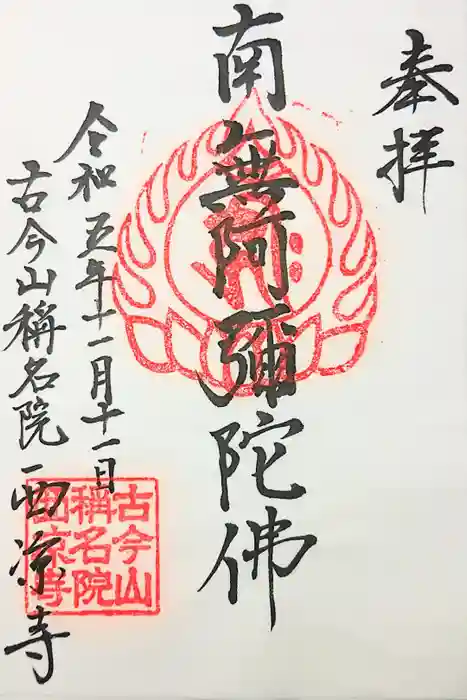 奉拝
南無阿彌陀佛
令和五年十一月十一日
古今山稱名院西凉寺
古今山
稱名院
西凉寺